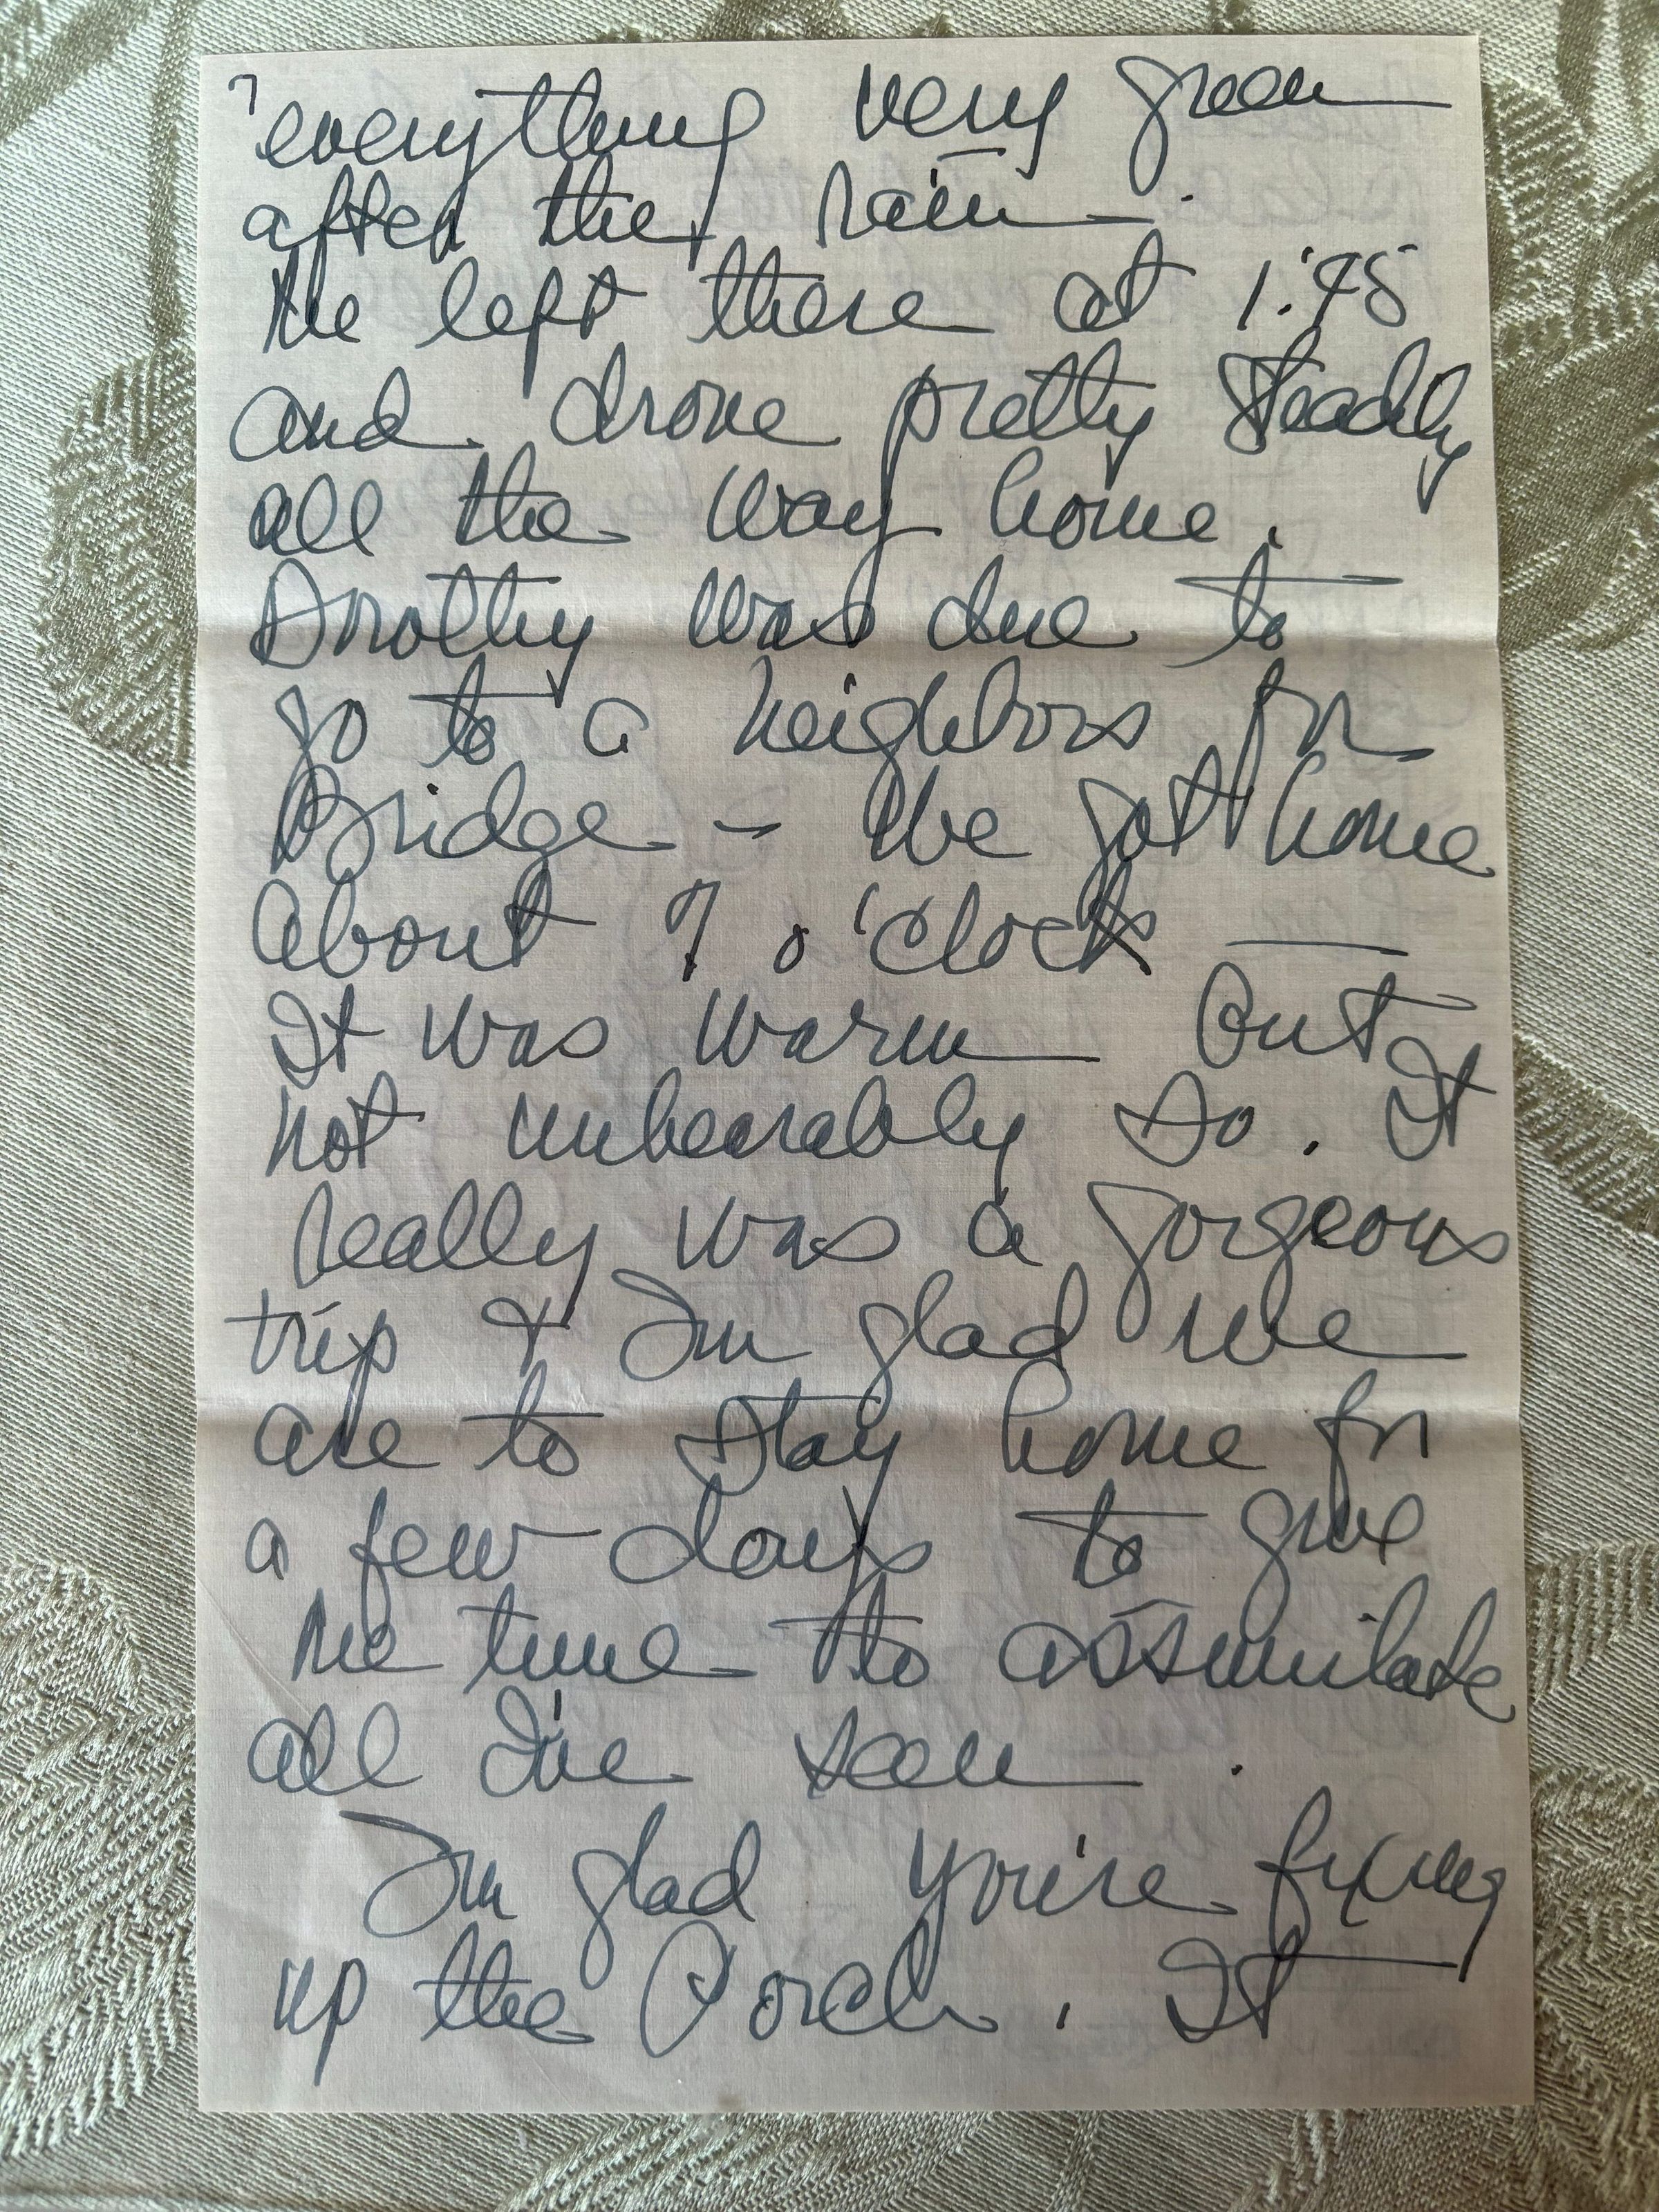 7
everything very green
after the rain.
We left there at 1:45
and drove pretty steadily
all the way home.
Dorothy was due to
go to a neighbors for
Bridge - We got home
about 7 o'clock —
It was warm but
not unbearably so. It
really was a gorgeous
trip & Im glad we
are to stay home for
a few days to give
me time to assimilate
all I've seen.
Im glad you're fixing
up the Porch. It